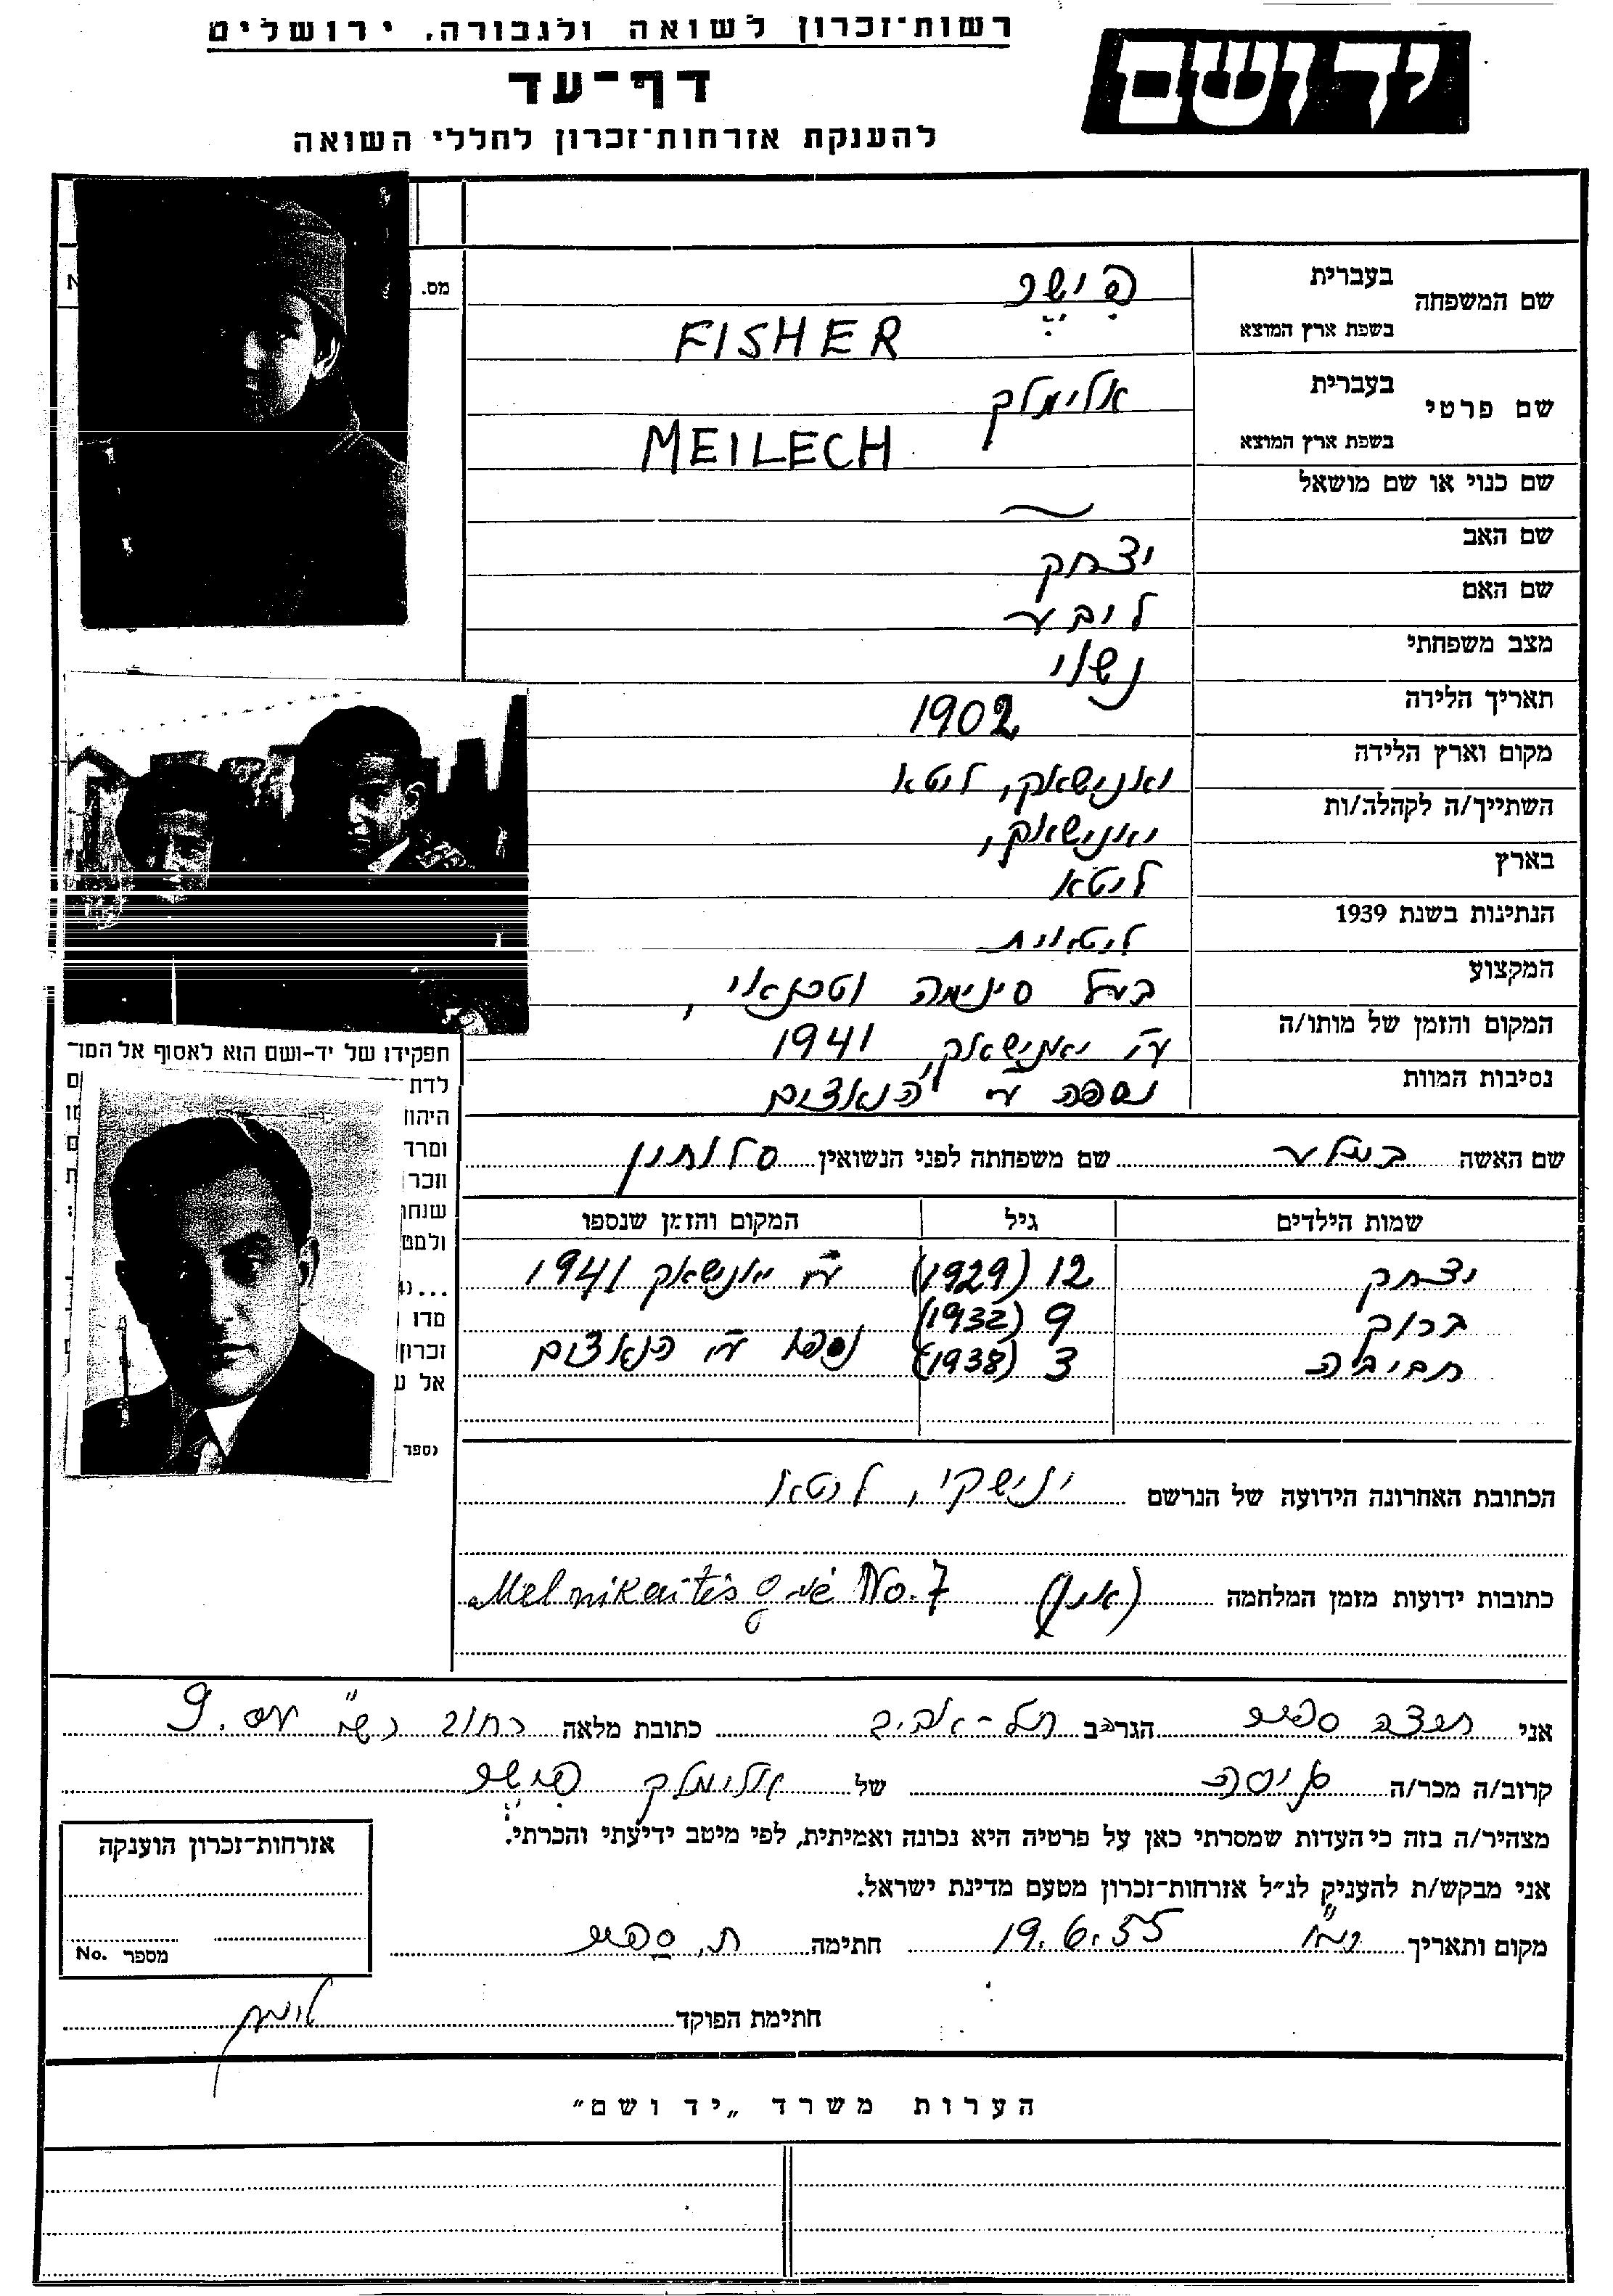 רשות־זכרון לשואה ולגבורה. ירושלים
יד ושם
דף־עד
להענקת אזרחות־זכרון לחללי השואה
מס.
שם המשפחה
בעברית
פישר
בשפת ארץ המוצא
FISHER
שם פרטי
בעברית
אלימלק
בשפת ארץ המוצא
MEILECH
שם כנוי או שם מושאל
שם האב
יצחק
שם האם
ליבע
מצב משפחתי
נשוי
תאריך הלירה
1902
מקום וארץ הלידה
יאנישאק, ליטא
השתייך/ה לקהלה/ות
יאנישאק,
בארץ
ליטא
הנתינות בשנת 1939
ליטאית
המקצוע
בעל סינימה
המקום והזמן של מותו/ה
ע״י יאנישאק, 1941
נסיבות המוות
נספה ע״י הנאצים
תפקידו של יד־ושם הוא לאסוף אל המו
לדת
היהו
ומרד
וזכר
שנחו
ולמט
זכרון
אל ע
נספר
שם האשה שם משפחתה לפני הנשואין
שמות הילדים גיל המקום והזמן שנספו
יצחק 12 (1929) ע״י יאנישאק 1941
ברוך 9 (1932)
חביבלה 3 (1938) נספו ע״י הנאצים
הכתובת האחרונה הידועה של הנרשם ינישקי, ליטא
כתובות ידועות מזמן המלחמה Melnikaitės g-vė No. 7
אני הגר/ה ב תל-אביב כתובת מלאה רחוב רש״י מס. 9
קרוב/ה מכר/ה גיסה של אלימלק פישר
מצהיר/ה בזה כי העדות שמסרתי כאן על פרטיה היא נכונה ואמיתית, לפי מיטב ידיעתי והכרתי.
אני מבקש/ת להעניק לנ״ל אזרחות־זכרון מטעם מדינת ישראל.
מקום ותאריך ת״א 19.6.55 חתימה
אזרחות־זכרון הוענקה
מספר No.
חתימת הפוקד
הערות משרד „יד ושם"